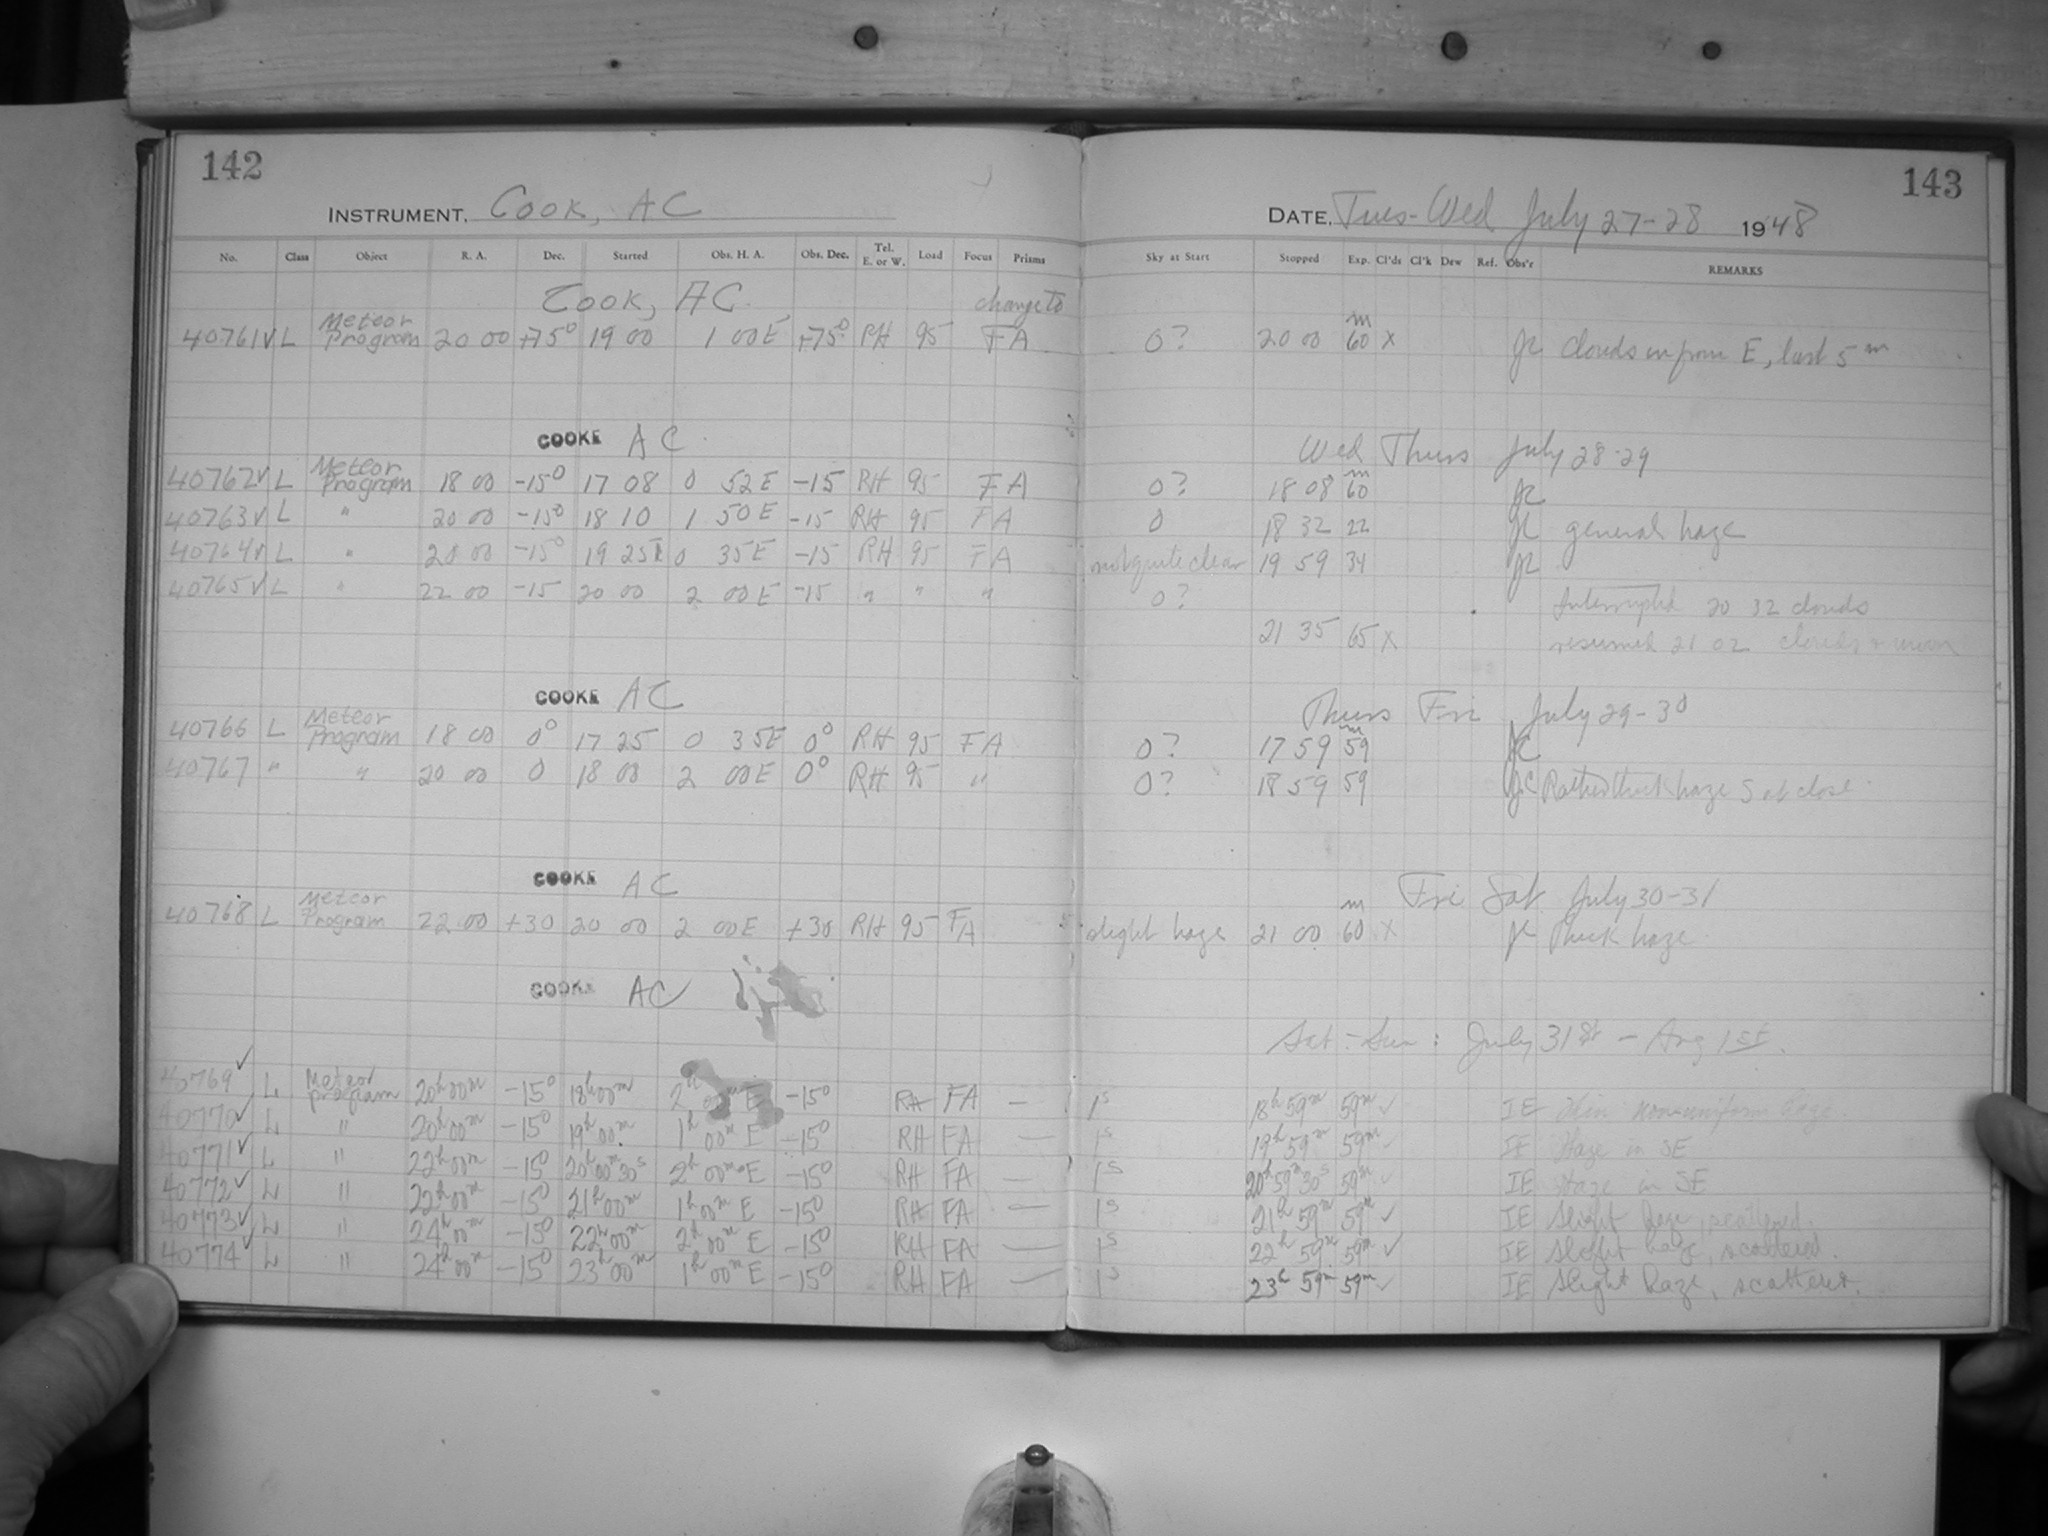 142
INSTRUMENT. Cook, AC
No. Class Object R. A. Dec. Started Obs. H. A. Obs. Dec. Tel. E. or W. Load Focus Prisms
Cook, AC change to
40761 ✓ L Meteor Program 20 00 +75° 19 00 1 00 E +75° RH 95 FA
COOKE AC
40762 ✓ L Meteor Program 18 00 -15° 17 08 0 52 E -15 RH 95 FA
40763 ✓ L " 20 00 -15° 18 10 1 50 E -15 RH 95 FA
40764 ✓ L " 20 00 -15° 19 25 0 35 E -15 RH 95 FA
40765 ✓ L " 22 00 -15 20 00 2 00 E -15 " " "
COOKE AC
40766 L Meteor Program 18 00 0° 17 25 0 35 E 0° RH 95 FA
40767 " " 20 00 0 18 00 2 00 E 0° RH 95 "
COOKE AC
40768 L Meteor Program 22 00 +30 20 00 2 00 E +30 RH 95 FA
COOKE AC
40769 ✓ L Meteor program 20h00m -15° 18h00m 2h 00m E -15° RH FA —
40770 ✓ L " 20h00m -15° 19h00m 1h 00m E -15° RH FA —
40771 ✓ L " 22h00m -15° 20h00m30s 2h 00m E -15° RH FA —
40772 ✓ L " 22h00m -15° 21h00m 1h00m E -15° RH FA —
40773 ✓ L " 24h00m -15° 22h00m 2h 00m E -15° RH FA —
40774 ✓ L " 24h00m -15° 23h00m 1h 00m E -15° RH FA —
143
DATE. Tues-Wed July 27-28 1948
Sky at Start Stopped Exp. Cl'ds Cl'k Dew Ref. Obs'r REMARKS
0? 20 00 60m X JC clouds in from E, last 5m
Wed Thurs July 28-29
0? 18 08 60m JC
0 18 32 22 JC general haze
not quite clear 19 59 34 JC
0? Interrupted 20 32 clouds
21 35 65 X resumed 21 02 clouds + moon
Thurs Fri July 29-30
0? 17 59 59m JC
0? 18 59 59 JC Rather thick haze S at close
Fri Sat July 30-31
slight haze 21 00 60m X JC thick haze
Sat-Sun: July 31st - Aug 1st.
1s 18h 59m 59m ✓ IE Thin nonuniform haze.
1s 19h 59m 59m ✓ IE Haze in SE
1s 20h 59m 30s 59m ✓ IE Haze in SE
1s 21h 59m 59m ✓ IE Slight haze, scattered.
1s 22h 59m 59m ✓ IE Slight haze, scattered.
1s 23h 59m 59m ✓ IE Slight haze,